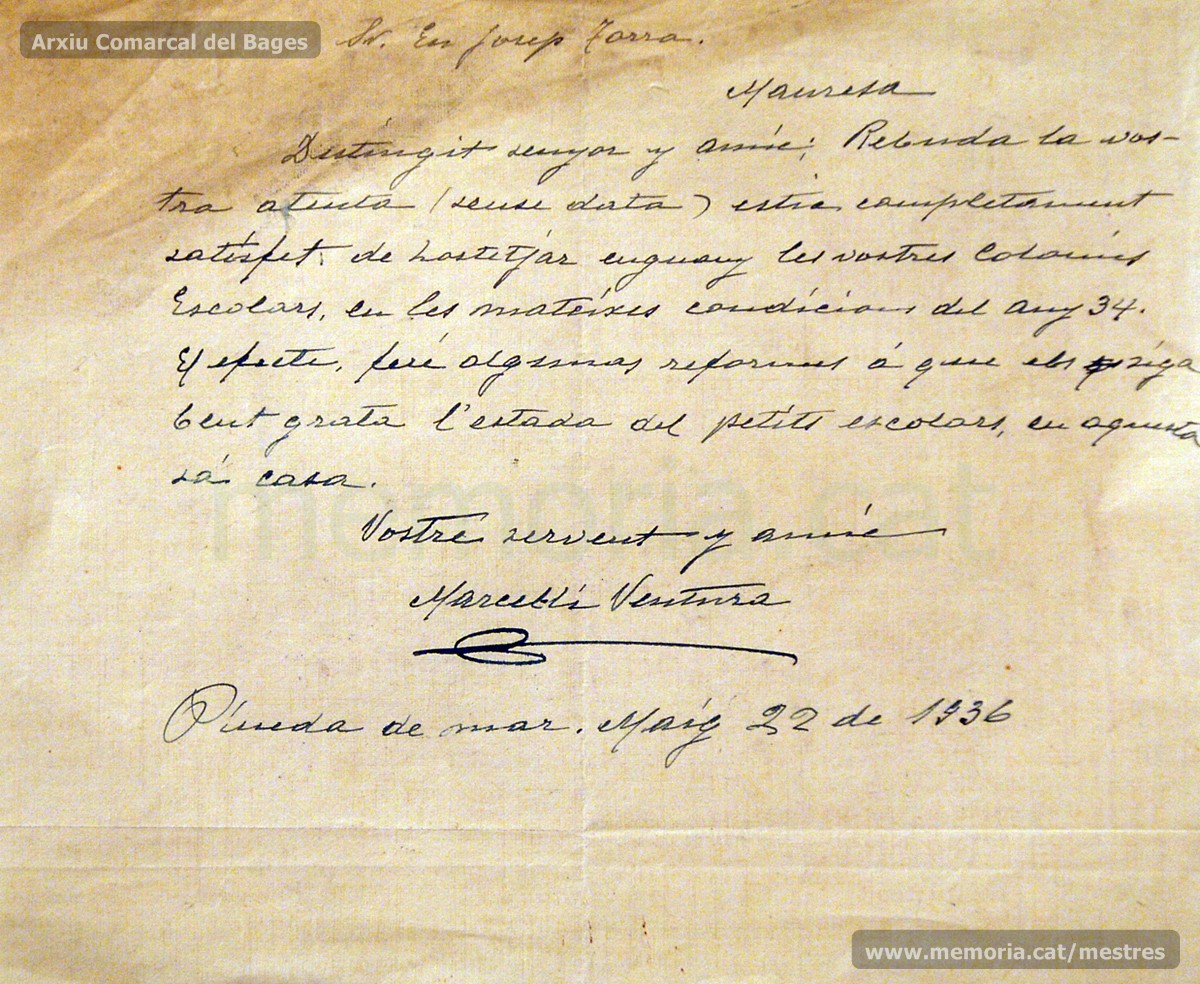 Arxiu Comarcal del Bages
Sr. En Josep Torra.
Manresa
Distingit senyor y amic; Rebuda la vos-
tra atenta (sense data) estic completament
satisfet, de hostetjar enguany les vostres Colonies
Escolars, en les mateixes condicions del any 34.
El efecte, feré algunas reformes á que els siga
bent grata l'estada del petits escolars, en aquesta
sá casa.
Vostre servent y amic
Marcel·lí Ventura
Pineda de mar. Maig 22 de 1936
memoria.cat
www.memoria.cat/mestres